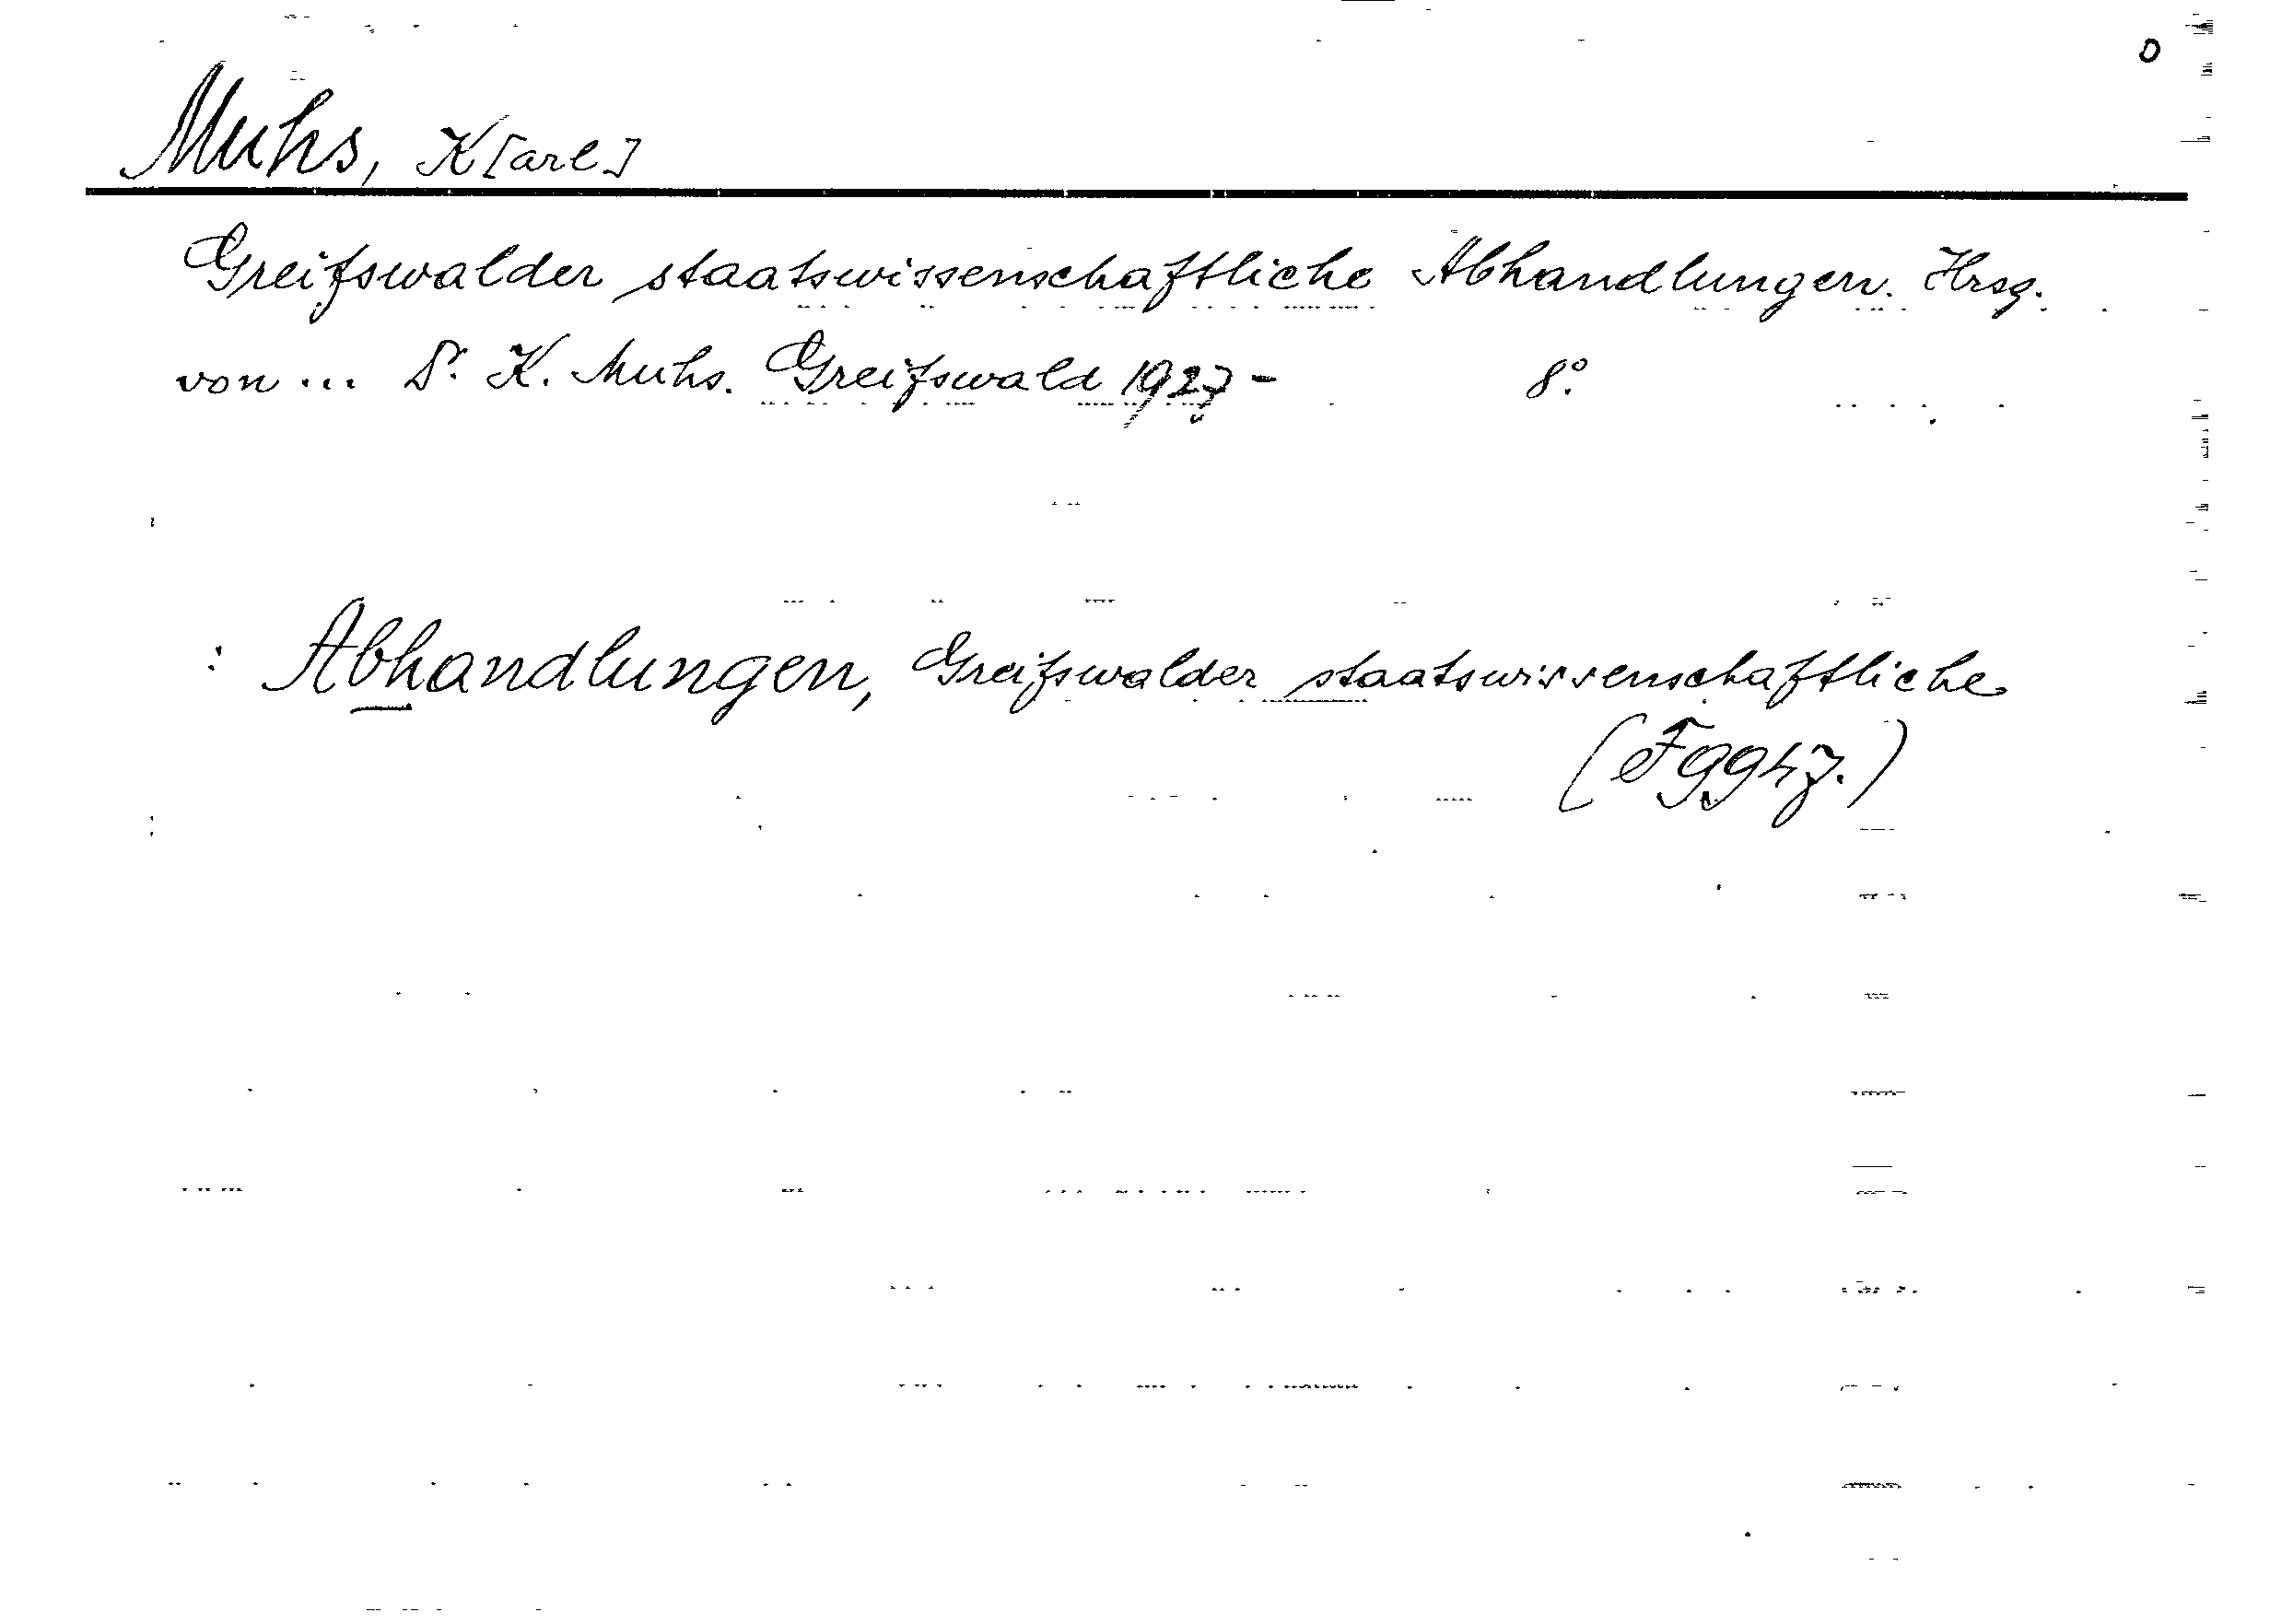 0
Muhs, K[arl]
Greifswalder staatswissenschaftliche Abhandlungen. Hrsg.
von ... Dr. K. Muhs. Greifswald 1927- 8°.
: Abhandlungen, Greifswalder staatswissenschaftliche
(F9947.)